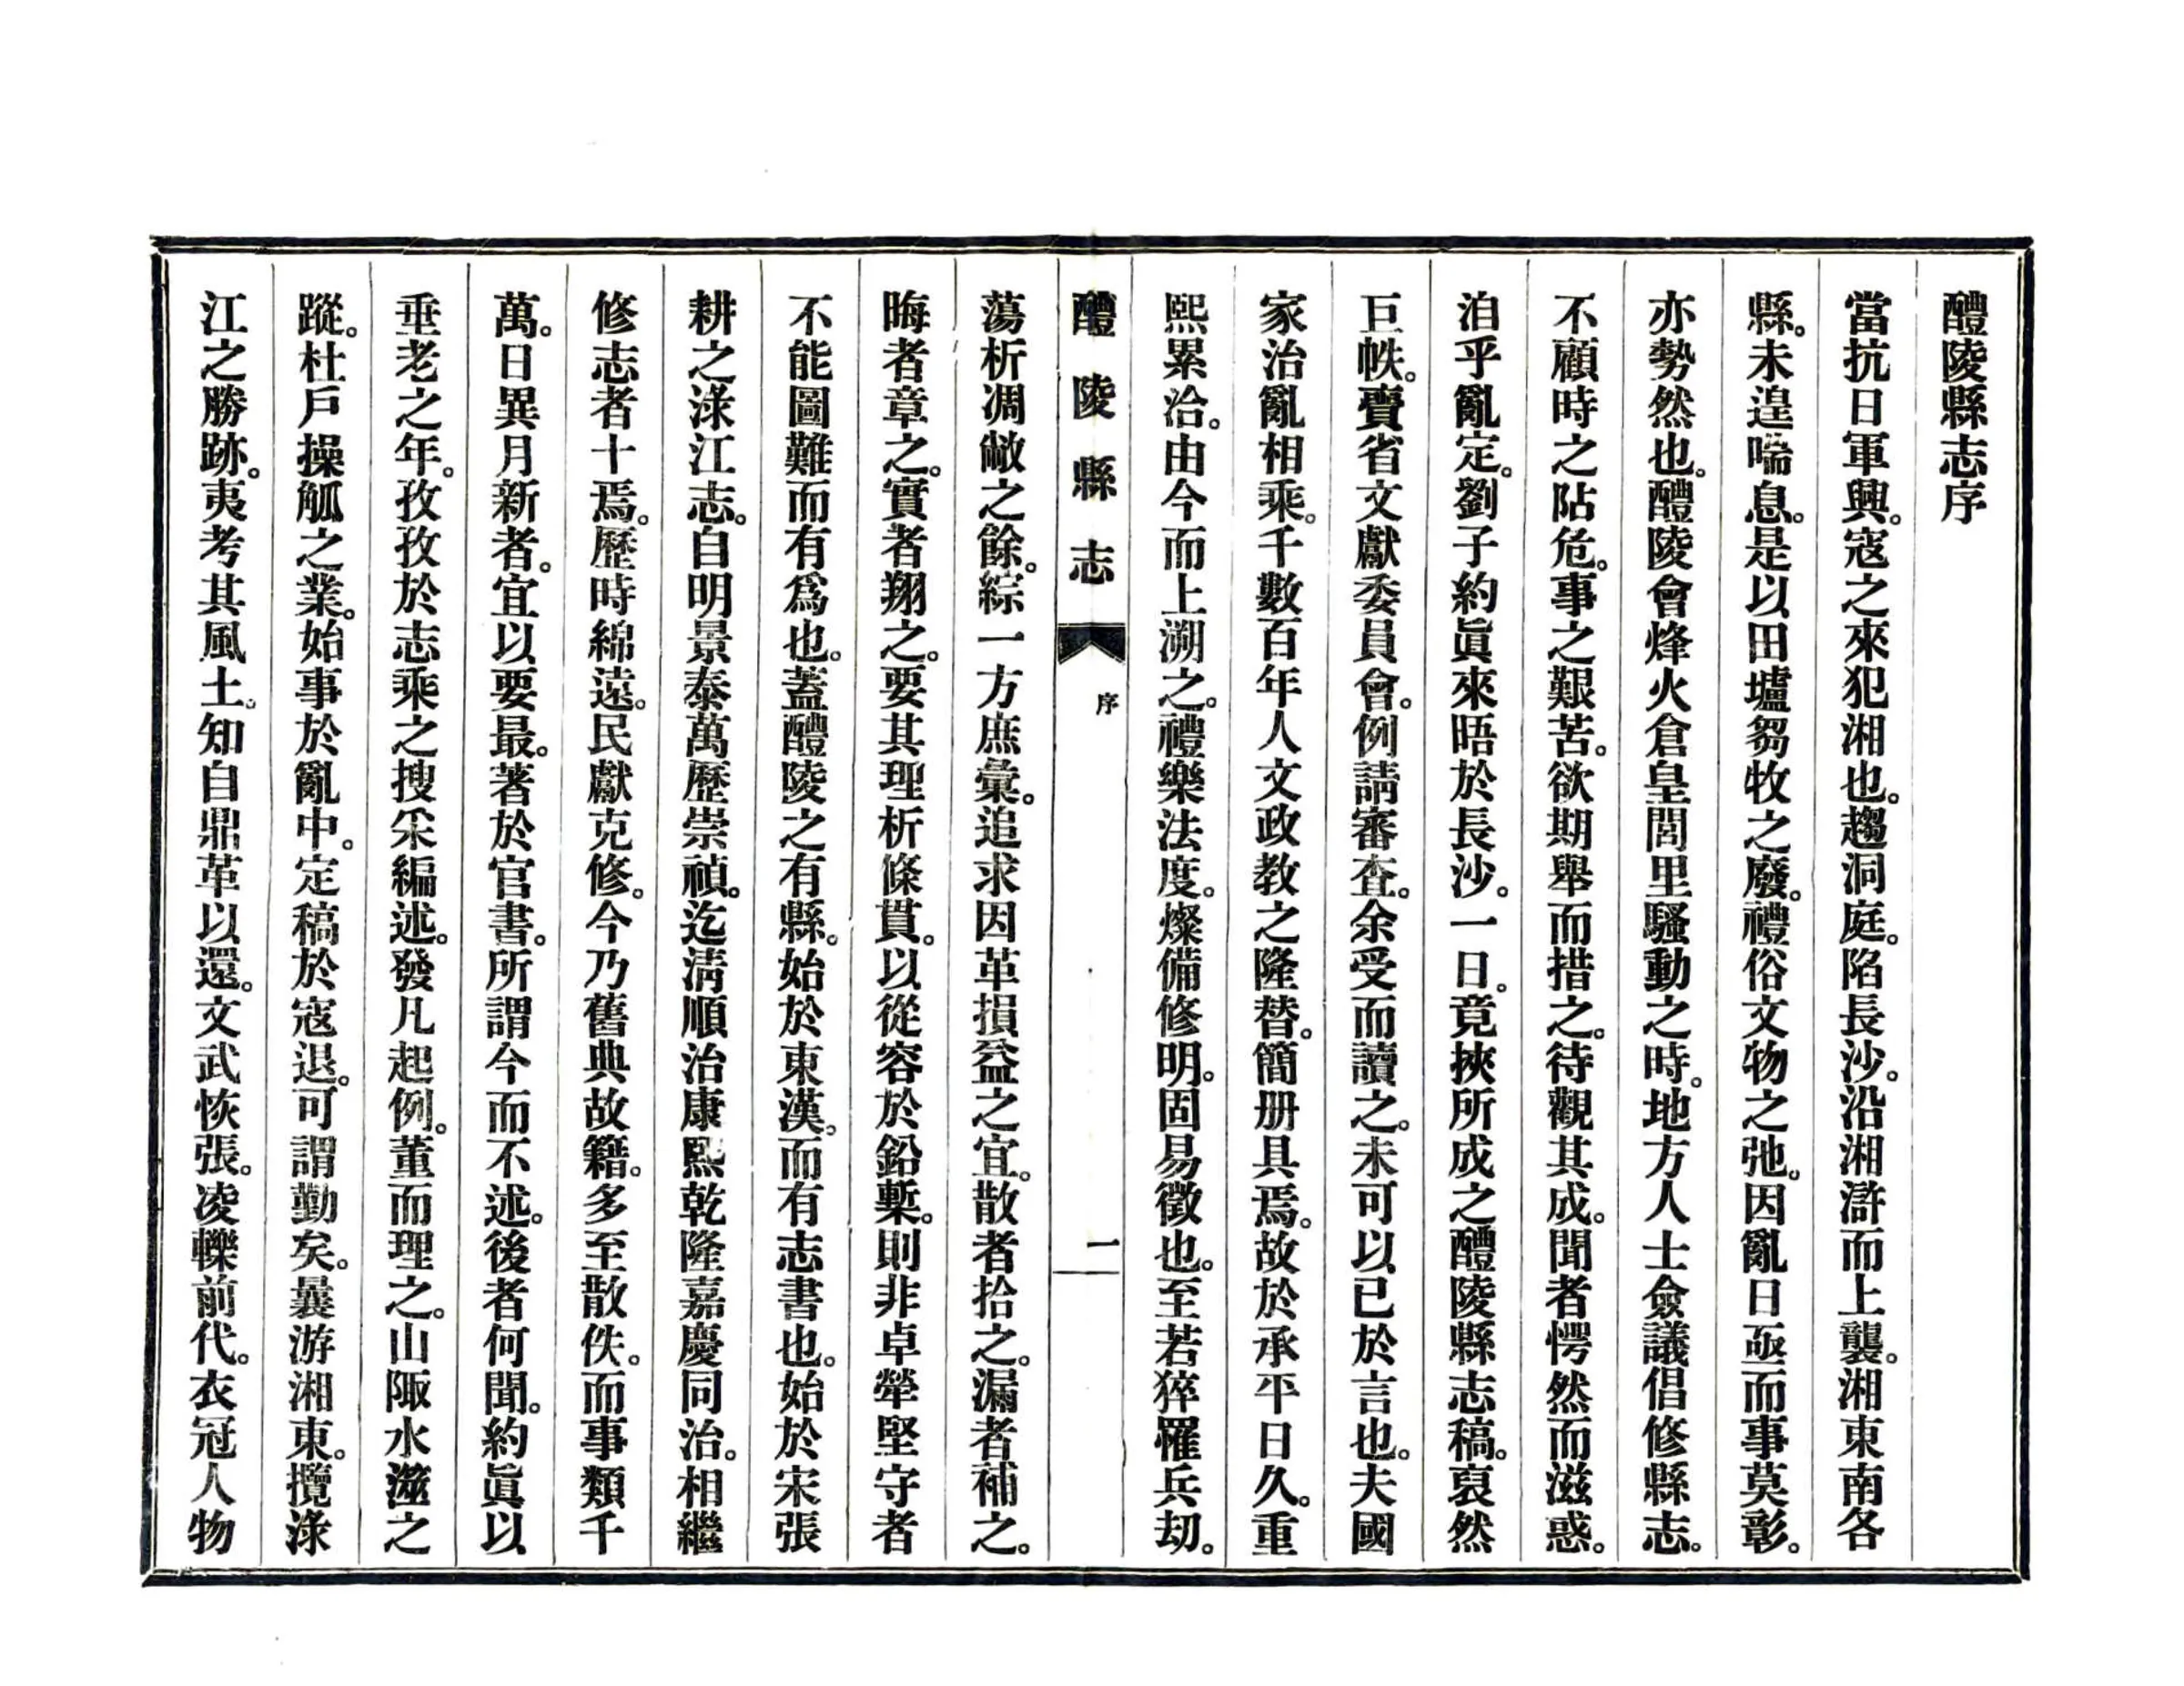 醴陵縣志序
當抗日軍興。寇之來犯湘也。趨洞庭。陷長沙。沿湘滸而上襲。湘東南各
縣。未遑喘息。是以田壚芻牧之廢。禮俗文物之弛。因亂日亟而事莫彰。
亦勢然也。醴陵會烽火倉皇閭里騷動之時。地方人士僉議倡修縣志。
不顧時之阽危。事之艱苦。欲期舉而措之。待觀其成。聞者愕然而滋惑。
洎乎亂定。劉子約眞來晤於長沙。一日。竟挾所成之醴陵縣志稿。裒然
巨帙。賷省文獻委員會。例請審查。余受而讀之。未可以已於言也。夫國
家治亂相乘。千數百年人文政教之隆替。簡册具焉。故於承平日久。重
熙累洽。由今而上溯之。禮樂法度。燦備修明。固易徵也。至若猝罹兵劫。
醴陵縣志 序 一
蕩析凋敝之餘。綜一方庶彙。追求因革損益之宜。散者拾之。漏者補之。
晦者章之。實者翔之。要其理析條貫。以從容於鉛槧。則非卓犖堅守者
不能圖難而有爲也。蓋醴陵之有縣。始於東漢。而有志書也。始於宋張
耕之淥江志。自明景泰萬歷崇禎。迄淸順治康熙乾隆嘉慶同治。相繼
修志者十焉。歷時綿遠。民獻克修。今乃舊典故籍。多至散佚。而事類千
萬。日異月新者。宜以要最。著於官書。所謂今而不述。後者何聞。約眞以
垂老之年。孜孜於志乘之搜采編述。發凡起例。董而理之。山陬水澨之
蹤。杜戶操觚之業。始事於亂中。定稿於寇退。可謂勤矣。曩游湘東。攬淥
江之勝跡。夷考其風土。知自鼎革以還。文武恢張。凌轢前代。衣冠人物